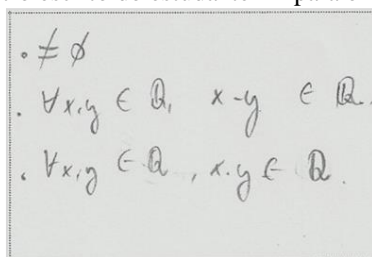 • ≠ ∅
. ∀x,y ∈ Q, x-y ∈ Q.
. ∀x,y ∈ Q, x.y ∈ Q.